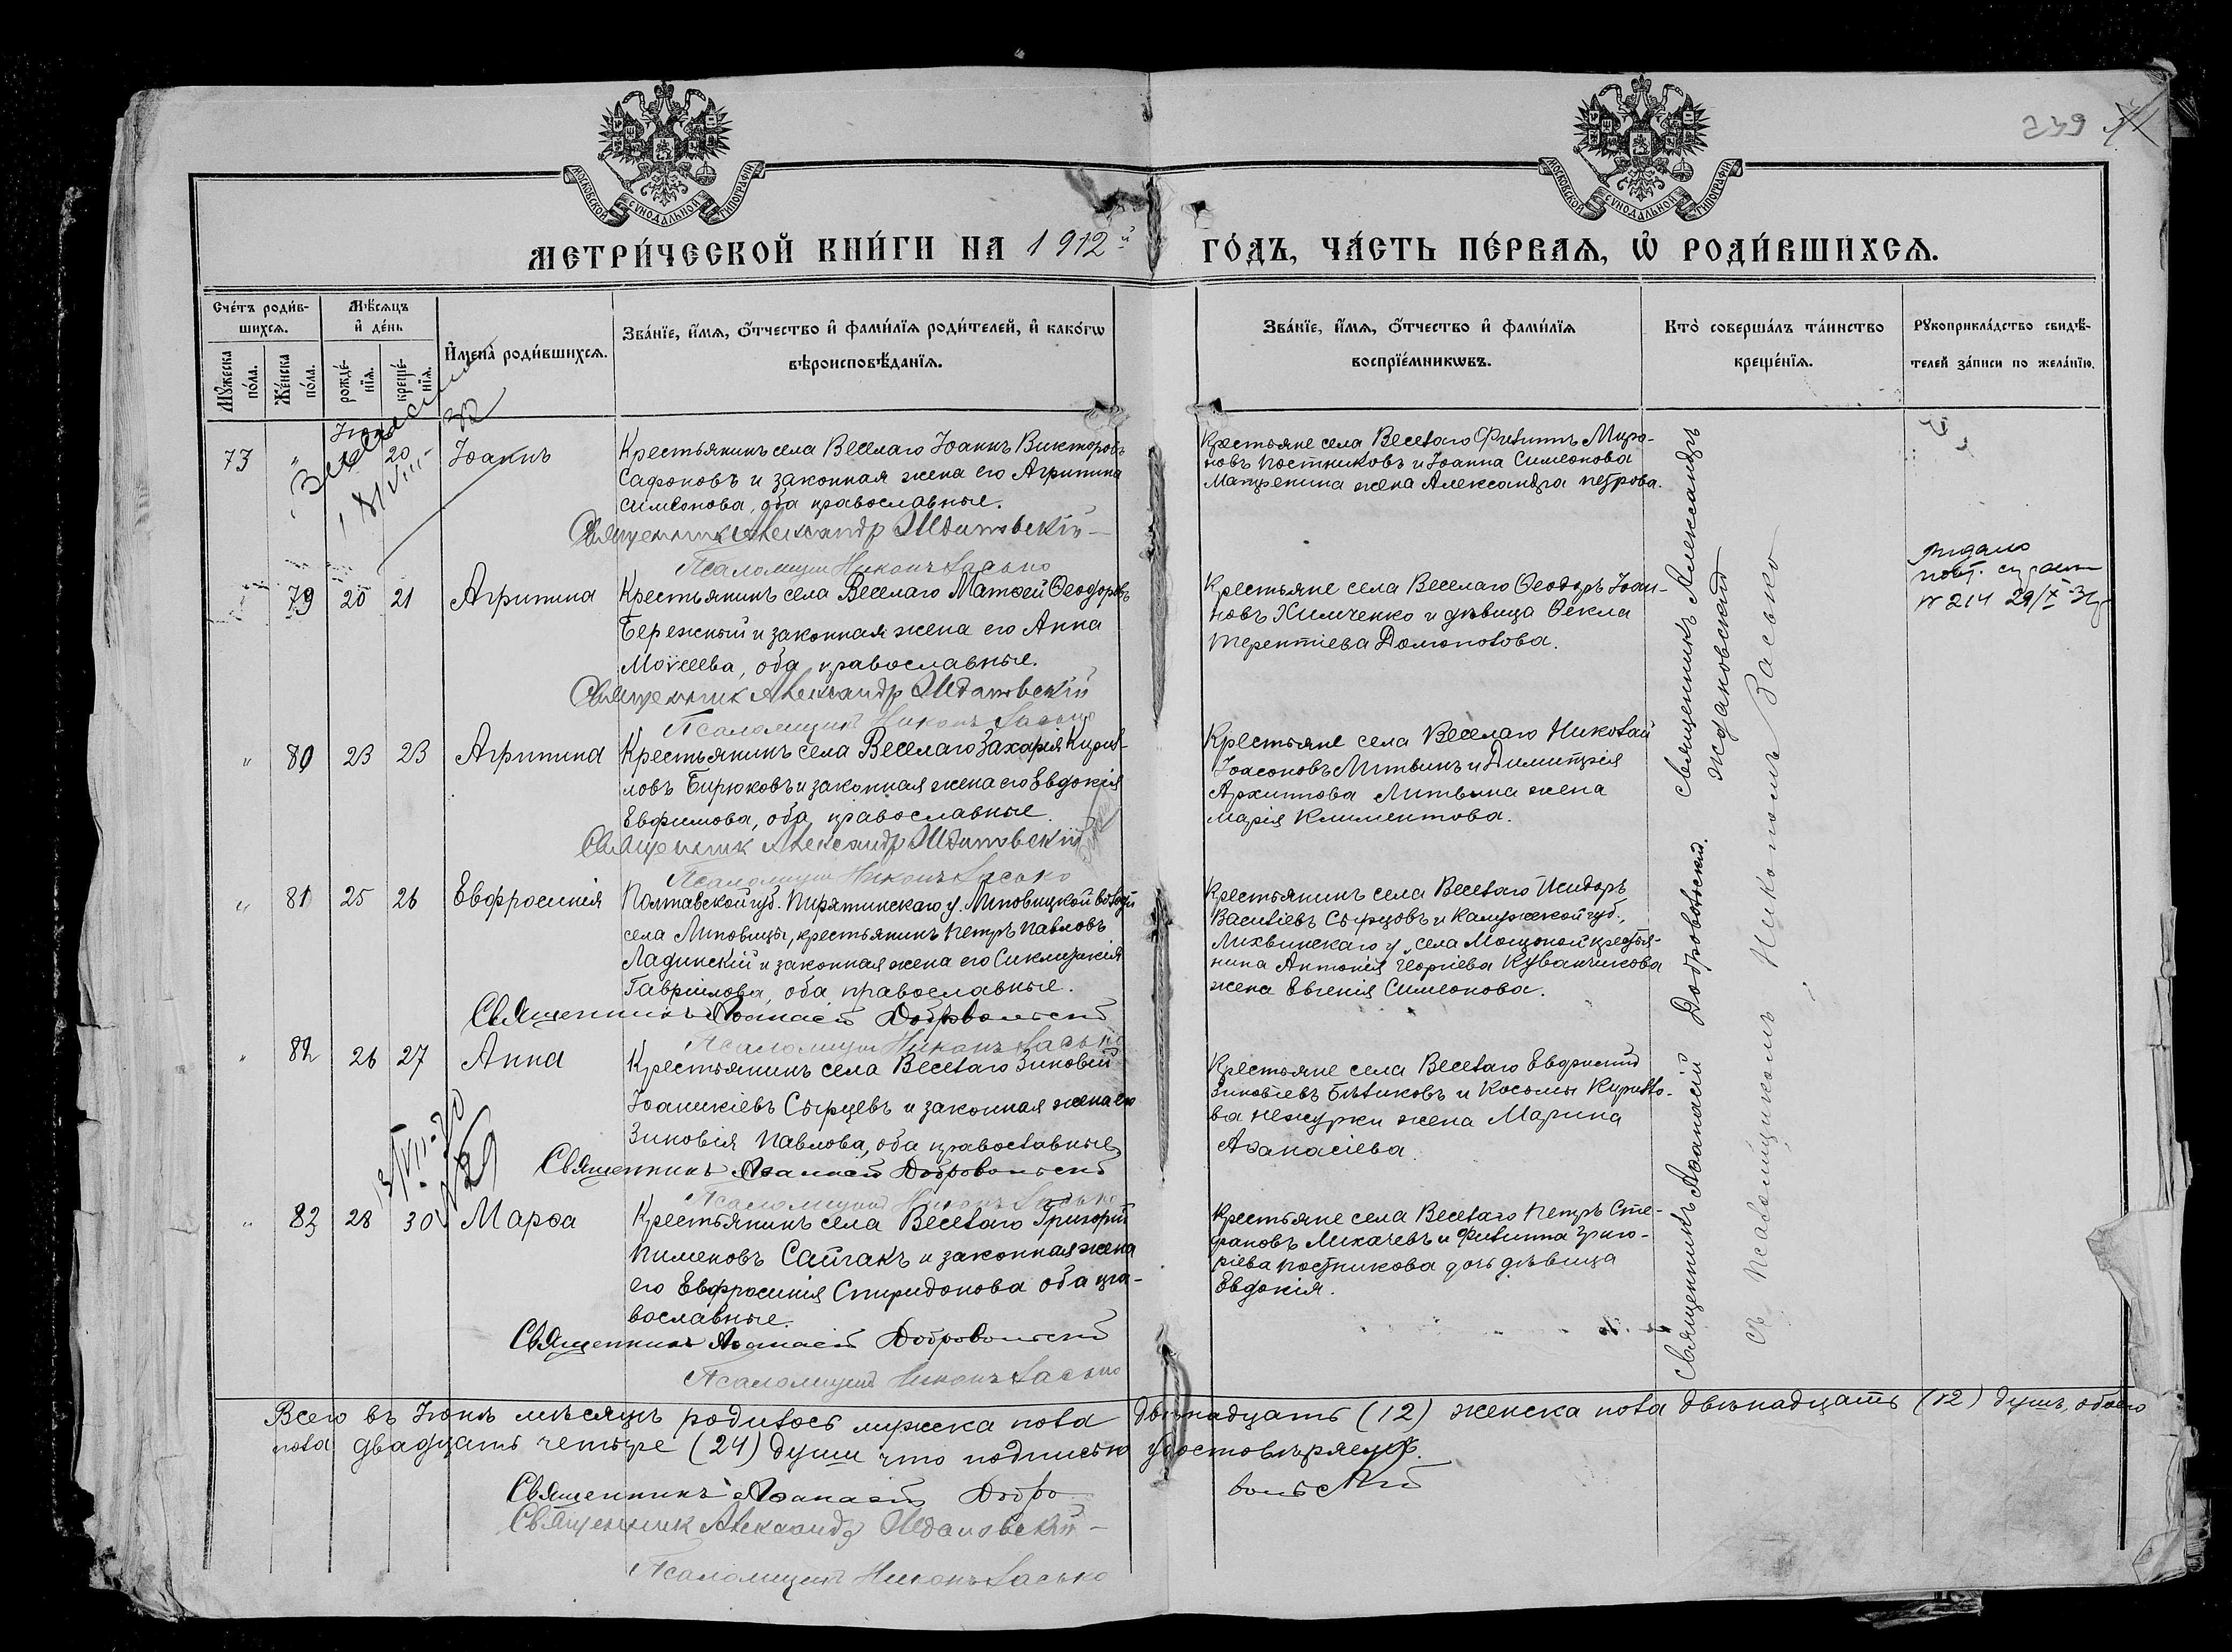 МОСКОВСКОЙ СѴНОДАЛЬНОЙ ТИПОГРАФІИ
МОСКОВСКОЙ СѴНОДАЛЬНОЙ ТИПОГРАФІИ
239
МЕТРИ́ЧЕСКОЙ КНИ́ГИ НА 1912й ГО́ДЪ, ЧА́СТЬ ПЕ́РВАѦ, Ѡ҆ РОДИ́ВШИХСѦ.
Сче́тъ роди́в-
шихсѧ.
Мꙋ́жеска
по́ла.
Же́нска
по́ла.
Мѣ́сѧцъ
и҆ де́нь
рожде́-
нїѧ.
креще́-
нїѧ.
И҆мена̀ роди́вшихсѧ.
Зва́нїе, и҆́мѧ, ѻ҆́тчество и҆ фами́лїѧ роди́телей, и҆ како́гѡ
вѣроисповѣ́данїѧ.
Зва́нїе, и҆́мѧ, ѻ҆́тчество и҆ фами́лїѧ
воспрїе́мникѡвъ.
Кто̀ соверша́лъ та́инство
креще́нїѧ.
Рꙋкоприкла́дство свидѣ́-
телей за́писи по жела́нїю.
73 " 20 Іоаннъ
Крестьянинъ села Веселаго Іоаннъ Викторовъ
Сафоновъ и законная жена его Агрипина
Симеонова, оба православные.
Священник Александр Ждановскій
Псаломщик Никонъ Засько
Крестьяне села Веселаго Филиппъ Миро-
новъ Постниковъ и Іоанна Симеонова
жена Александра Петрова.
79 20 21 Агрипина
Крестьянинъ села Веселаго Матѳей Ѳеодоровъ
Бережный и законная жена его Анна
Моѵсеева, оба православные.
Священник Александр Ждановскій
Псаломщик Никонъ Засько
Крестьяне села Веселаго Ѳеодоръ Іоан-
новъ Химченко и дѣвица Ѳекла
Терентіева Домополова.
Выдано
№ 214 29/X
" 80 23 23 Агрипина
Крестьянинъ села Веселаго Захарія Кирил-
ловъ Бирюковъ и законная жена его Евдокія
Евфимова, оба православные.
Священник Александр Ждановскій
Псаломщик Никонъ Засько
Крестьяне села Веселаго Николай
Іоасоновъ Литвинъ и Димитрія
Архиппова Литвина жена
Марія Климентова.
" 81 25 26 Евфросинія
Полтавской губ. Пирятинскаго у. волости
села крестьянинъ Петръ Павловъ
Ладинскій и законная жена его Сиклитикія
Гавріилова, оба православные.
Священникъ Аѳанасій Добровольскій
Псаломщик Никонъ Засько
Крестьянинъ села Веселаго Исидоръ
Василіевъ Сырцовъ и Калужской губ.,
Лихвинскаго у., села крестья-
нина Антонія Георгіева Куванчикова
жена Евгенія Симеонова.
" 82 26 27 Анна
Крестьянинъ села Веселаго Зиновій
Іоаникіевъ Сырцевъ и законная жена его
Зиновія Павлова, оба православные
Священникъ Аѳанасій Добровольскій
Псаломщик Никонъ Засько
Крестьяне села Веселаго Евфимій
Зиновіевъ Бѣликовъ и Космы Кирилло-
ва жена Марина
Аѳанасіева.
" 83 28 30 Марѳа
Крестьянинъ села Веселаго Григорій
Пименовъ Сайгакъ и законная жена
его Евфросинія Спиридонова оба пра-
вославные.
Священникъ Аѳанасій Добровольскій
Псаломщик Никонъ Засько
Крестьяне села Веселаго Петръ Сте-
фановъ Лихачевъ и Филиппа Григо-
ріева Постникова дочь дѣвица
Евдокія.
Священникъ Александръ
Ждановскій
Священникъ Аѳанасій Добровольскій.
съ псаломщикомъ Никономъ Засько
Всего въ Іюнѣ мѣсяцѣ родилось мужска пола двѣнадцать (12) женска пола двѣнадцать (12) душъ, обоего
пола двадцать четыре (24) души что подписью удостовѣряемъ.
Священникъ Аѳанасій Добровольскій
Священник Александр Ждановскій
Псаломщик Никонъ Засько